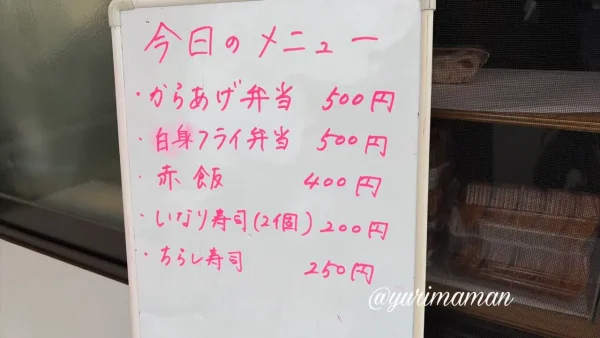 今日のメニュー
・からあげ弁当 500円
・白身フライ弁当 500円
・赤飯 400円
・いなり寿司(2個) 200円
・ちらし寿司 250円
@yurimaman